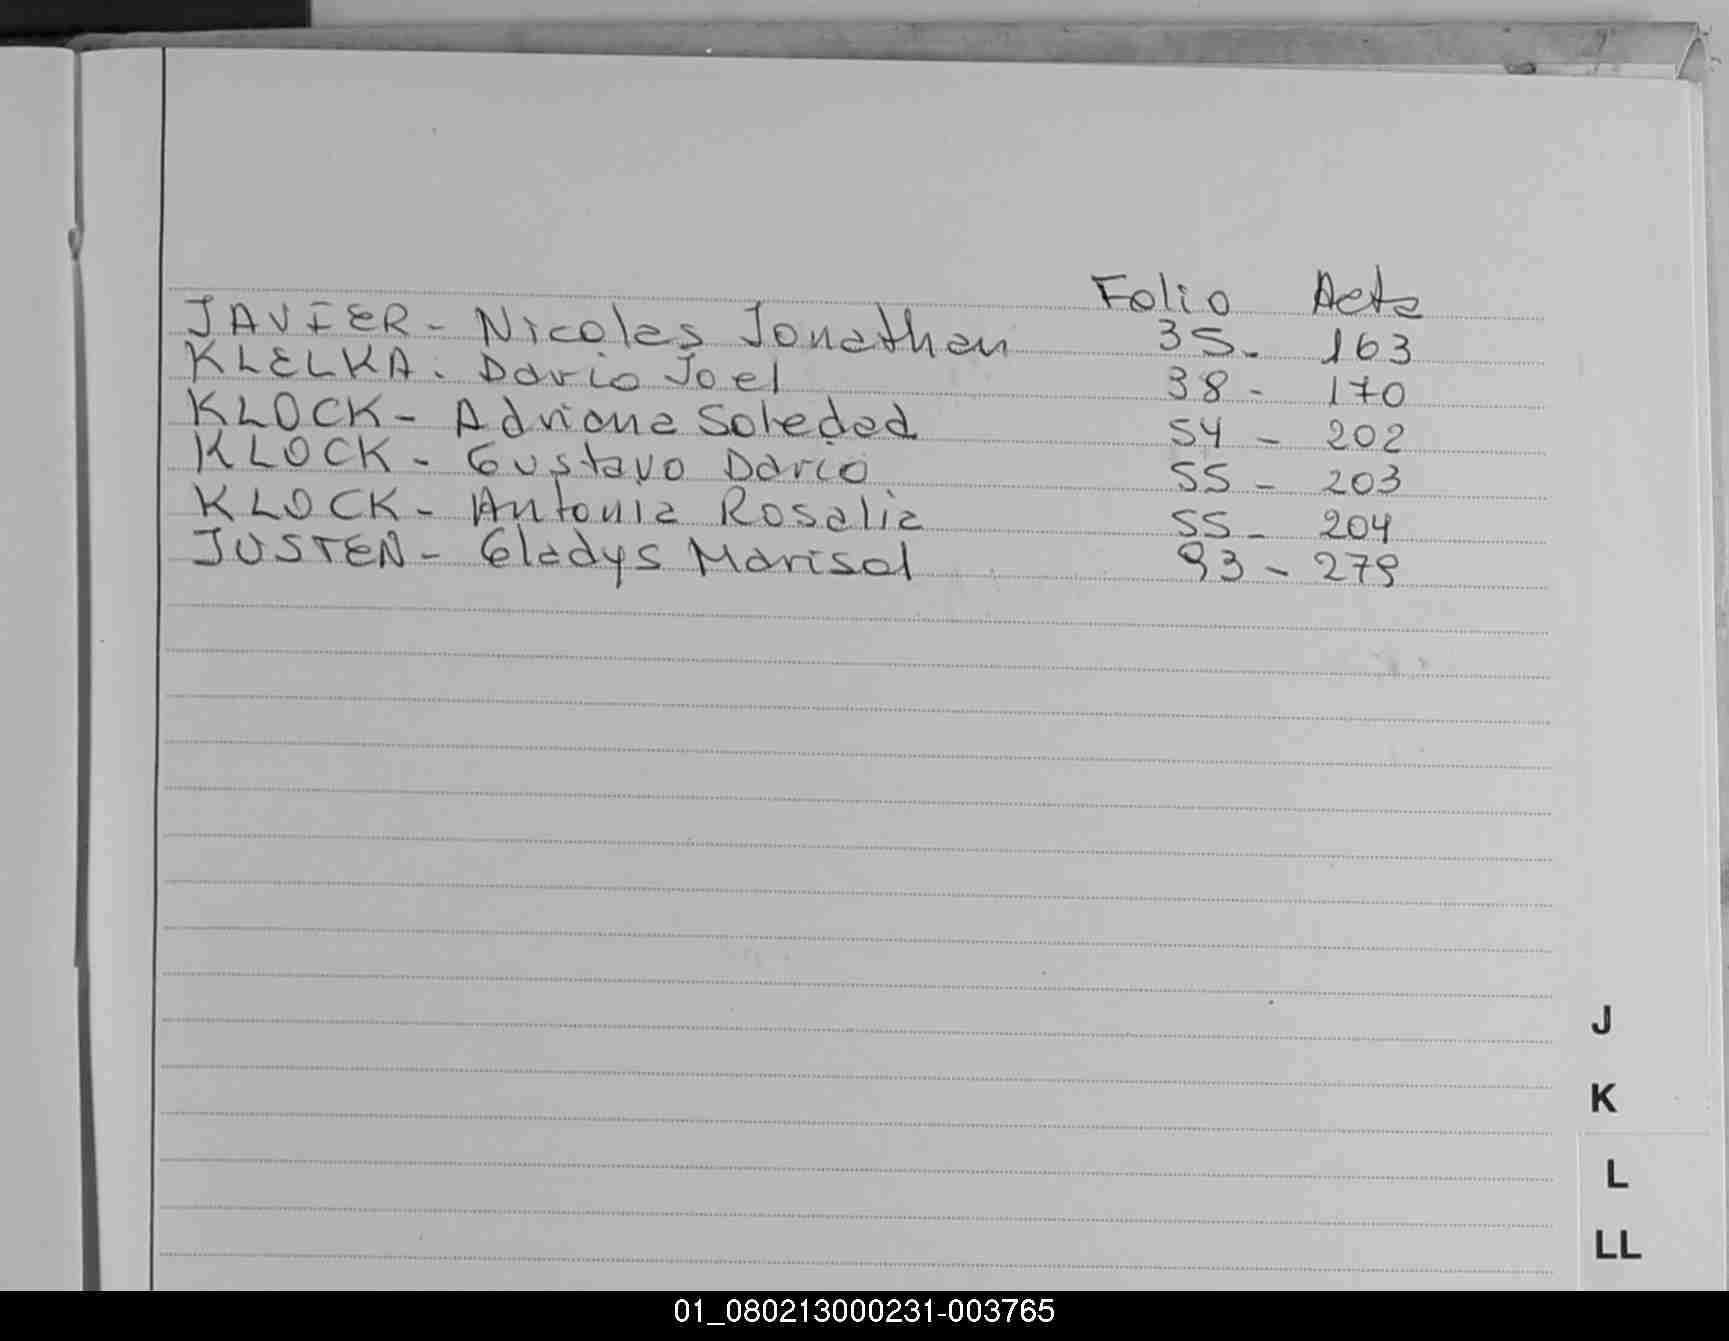 Folio Acta
JAVIER - Nicolas Jonathan 35- 163
KLELKA. Dario Joel 38- 170
KLOCK- Adriana Soledad 54- 202
KLOCK- Gustavo Dario 55- 203
KLOCK- Antonia Rosalia 55- 204
JUSTEN- Gladys Marisol 93- 279
J
K
L
LL
01_080213000231-003765